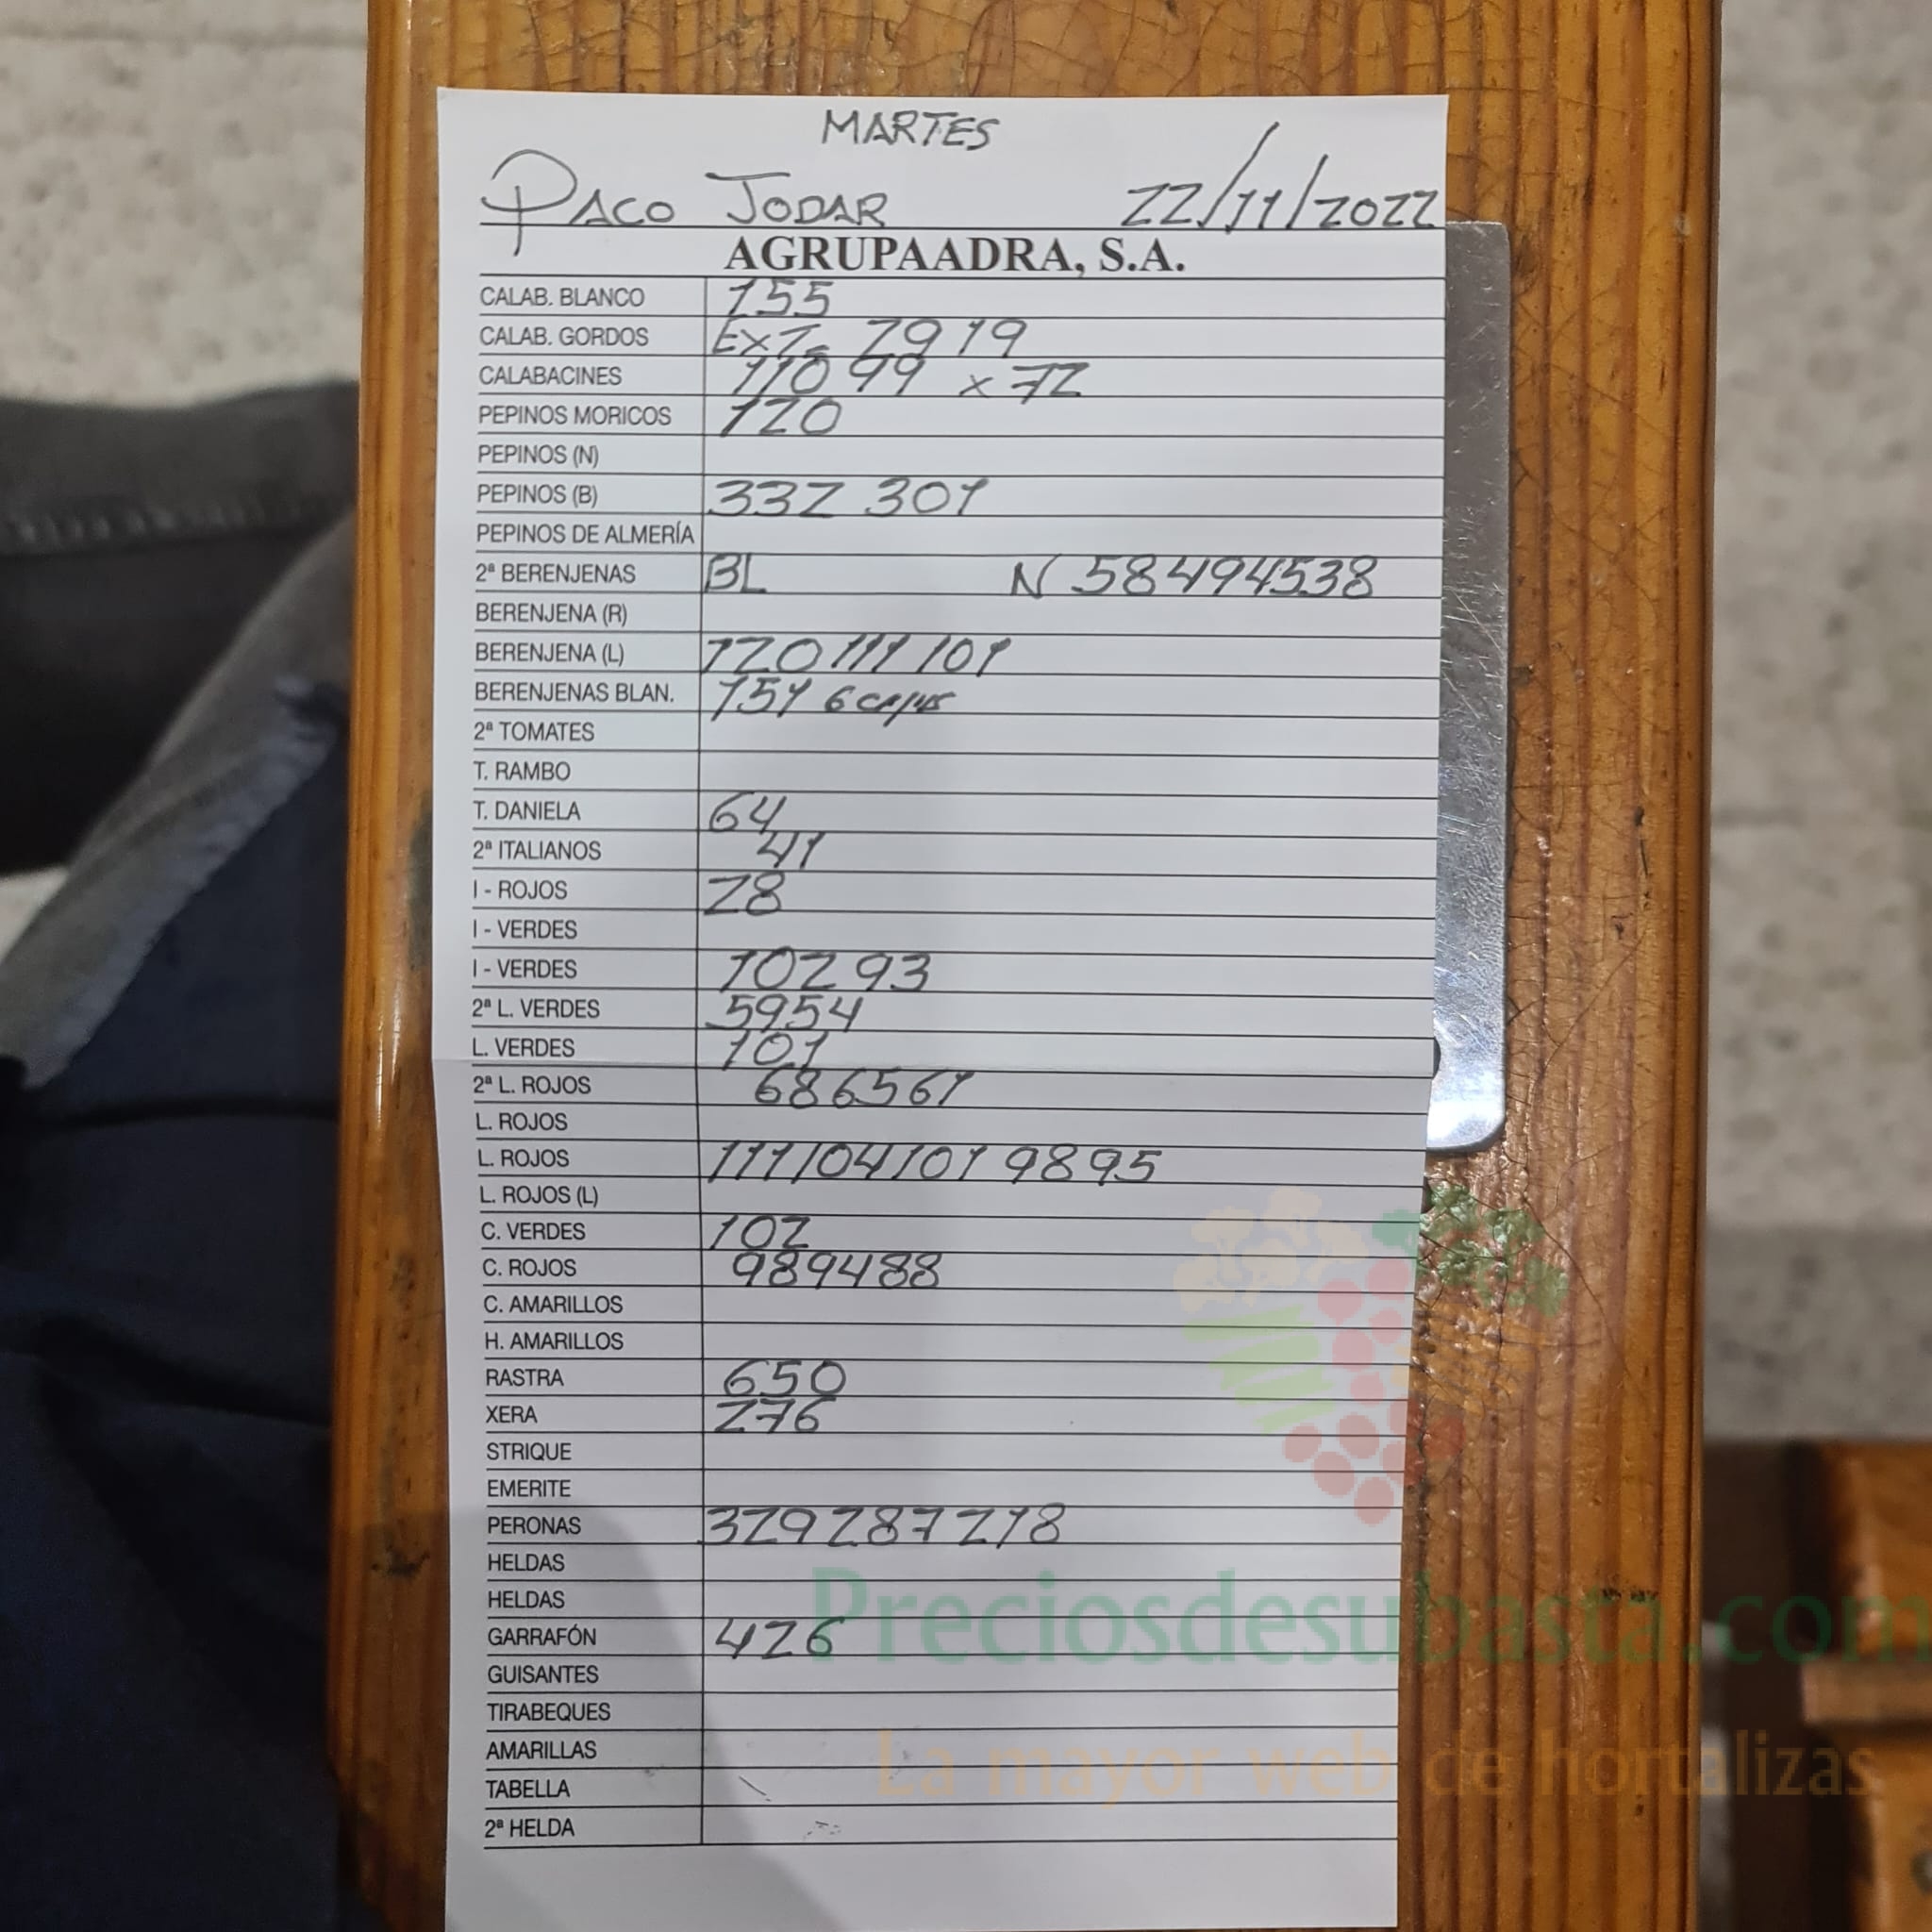 MARTES
PACO JODAR 22/11/2022
AGRUPAADRA, S.A.
CALAB. BLANCO 155
CALAB. GORDOS EXT. 2919
CALABACINES 110 99 x 72
PEPINOS MORICOS 120
PEPINOS (N)
PEPINOS (B) 332 301
PEPINOS DE ALMERÍA
2ª BERENJENAS BL N 58494538
BERENJENA (R)
BERENJENA (L) 120 111 101
BERENJENAS BLAN. 151 6 cajas
2ª TOMATES
T. RAMBO
T. DANIELA 64
2ª ITALIANOS 41
I - ROJOS 28
I - VERDES
I - VERDES 102 93
2ª L. VERDES 5954
L. VERDES 101
2ª L. ROJOS 686561
L. ROJOS
L. ROJOS 111 104 101 98 95
L. ROJOS (L)
C. VERDES 102
C. ROJOS 989488
C. AMARILLOS
H. AMARILLOS
RASTRA 650
XERA 276
STRIQUE
EMERITE
PERONAS 329 287 218
HELDAS
HELDAS
GARRAFÓN 426
GUISANTES
TIRABEQUES
AMARILLAS
TABELLA
2ª HELDA
Preciosdesubasta.com
La mayor web de hortalizas